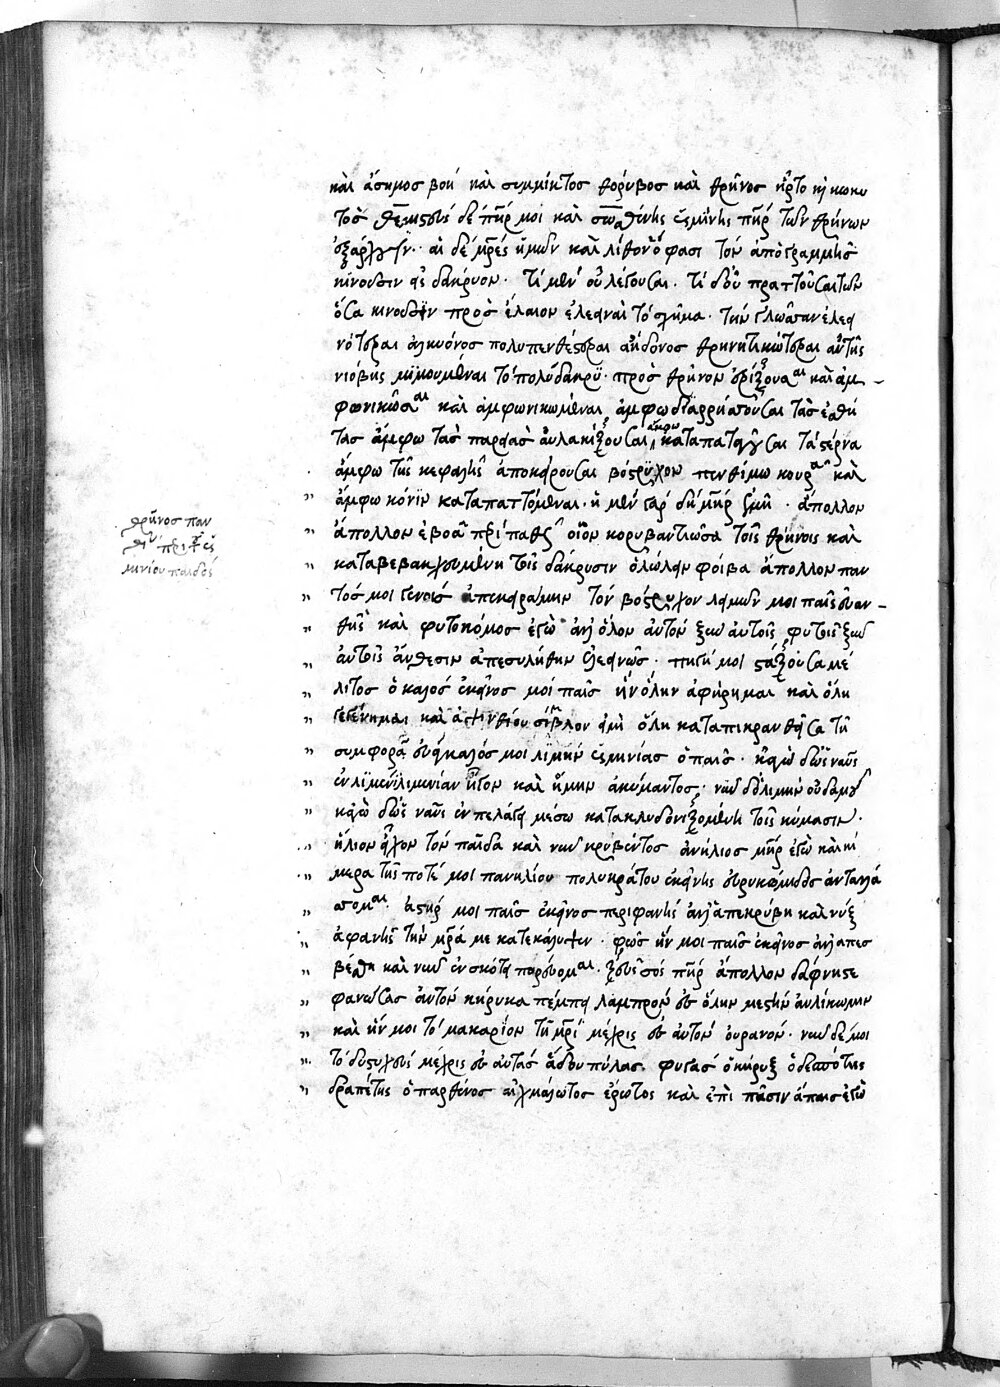 καὶ ἄσημος βοὴ καὶ συμμίκτος θόρυβος καὶ θρῆνος ἦρτο κὴ κωκυ
τὸς Θεμιστεὺς δὲ πῆρ μοι καὶ Σωσθένης Ὑσμίνης πῆρ τῶν θρήνων
ἐξάρχουσιν· αἱ δὲ μρες ἡμῶν καὶ λίθον ὄφασι τὸν ἀπὸ γραμμῆς
κινοῦσιν εἰς δάκρυον· τί μὲν οὐ λέγουσαι· τί δ' οὐ πράττουσαι τῶν
ὅσα κινοῦσιν πρὸς ἔλεον ἐλεειναὶ τὸ σχῆμα· τὴν γλῶτταν ἐλεει
νότεραι ἀλκυόνος πολυπενθέστεραι ἀηδόνος θρηνητικώτεραι αὐτῆς
νιόβης μιμούμεναι τὸ πολύδακρυ· πρὸς θρῆνον ἐρίζουσαι καὶ ἀμ-
φωνικῶσαι καὶ ἀμφωνικωμέναι, ἄμφω διαρρηττοῦσαι τὰς ἐσθῆ
τας ἄμφω τὰς παρειὰς αὐλακίζουσαι ἄμφω καταπαταγοῦσαι τὰ στέρνα
ἄμφω τῆς κεφαλῆς ἀποκείρουσαι βόστρυχον πενθίμω κουρᾶ καὶ
ἄμφω κόνιν καταπαττόμεναι· ἡ μὲν γὰρ δὴ μῆηρ ἐμὴ· ἄπολλον
ἄπολλον ἐβόα περιπαθῶς οἷον κορυβαντιῶσα τοῖς θρήνοις καὶ
θρῆνος παν
θὺς περὶ τῆς
μινίου παιδός
καταβεβακχευμένη τοῖς δάκρυσιν ὀλώλειν φοῖβε ἄπολλον παν
τός μοι γένους ἀπεκειράμην τὸν βόστρυχον λειμών μοι παῖς εὐαν-
θὴς καὶ φυτοκόμος ἐγὼ ἀλλ' ὅλον αὐτὸν ξὺν αὐτοῖς φυτοῖς ξὺν
αὐτοῖς ἄνθεσιν ἀπεσυλήθην ἐλεεινῶς· πηγή μοι στάζουσα μέ
λιτος ὁ καλὸς ἐκεῖνος μοι παῖς ἣν ὅλην ἀφήρημαι καὶ ὅλη
γεγένημαι καὶ ἀψινθίου σίμβλον ἀεὶ ὅλη καταπικρανθεῖσα τῆ
συμφορᾶ εὐγάληνός μοι λιμὴν ὑσμινίας ὁ παῖς· κἀγὼ δ' ὡς ναῦς
ἐν λιμένι λιμενίαν ἦγον καὶ ἤμην ἀκύμαντος, νῦν δ' ὁ λιμὴν οὐδαμοῦ
κἀγὼ δ' ὡς ναῦς ἐν πελάγει μέσω κατακλυδωνιζομένη τοῖς κύμασιν·
ἥλιον εἶχον τὸν παῖδα καὶ νῦν κρυβέντος ἀνήλιος μῆηρ ἐγὼ καὶ ἡ
μέρα τῆς ποτέ μοι πανηλίου πολυκράτου ἐκείνης εὐρυκώμιδος ἀνταλλά
ττομαι· ἀστήρ μοι παῖς ἐκεῖνος περιφανὴς ἀλλ' ἀπεκρύβη καὶ νὺξ
ἀφανὴς τὴν μρα με κατεκάλυψεν· φῶς ἦν μοι παῖς ἐκεῖνος ἀλλ' ἀπεσ
βέσθη καὶ νῦν ἐν σκότει πορεύομαι. ζεῦ σὸς πῆρ ἄπολλον δαφνηστε
φανώσας αὐτὸν κήρυκα πέμπει λαμπρὸν εἰς ὅλην μεστὴν αὐλίκωμιν
καὶ ἦν μοι τὸ μακάριον τῆ μρὶ μέχρις εἰς αὐτὸν οὐρανόν· νῦν δέ μοι
τὸ δυστυχὲς μέχρις εἰς αὐτὰς ᾅδου πύλας. φυγὰς ὁ κήρυξ ὁ δεσπότης
δραπέτης ὁ παρθένος αἰχμάλωτος ἔρωτος καὶ ἐπὶ πᾶσιν ἄπαις ἐγὼ